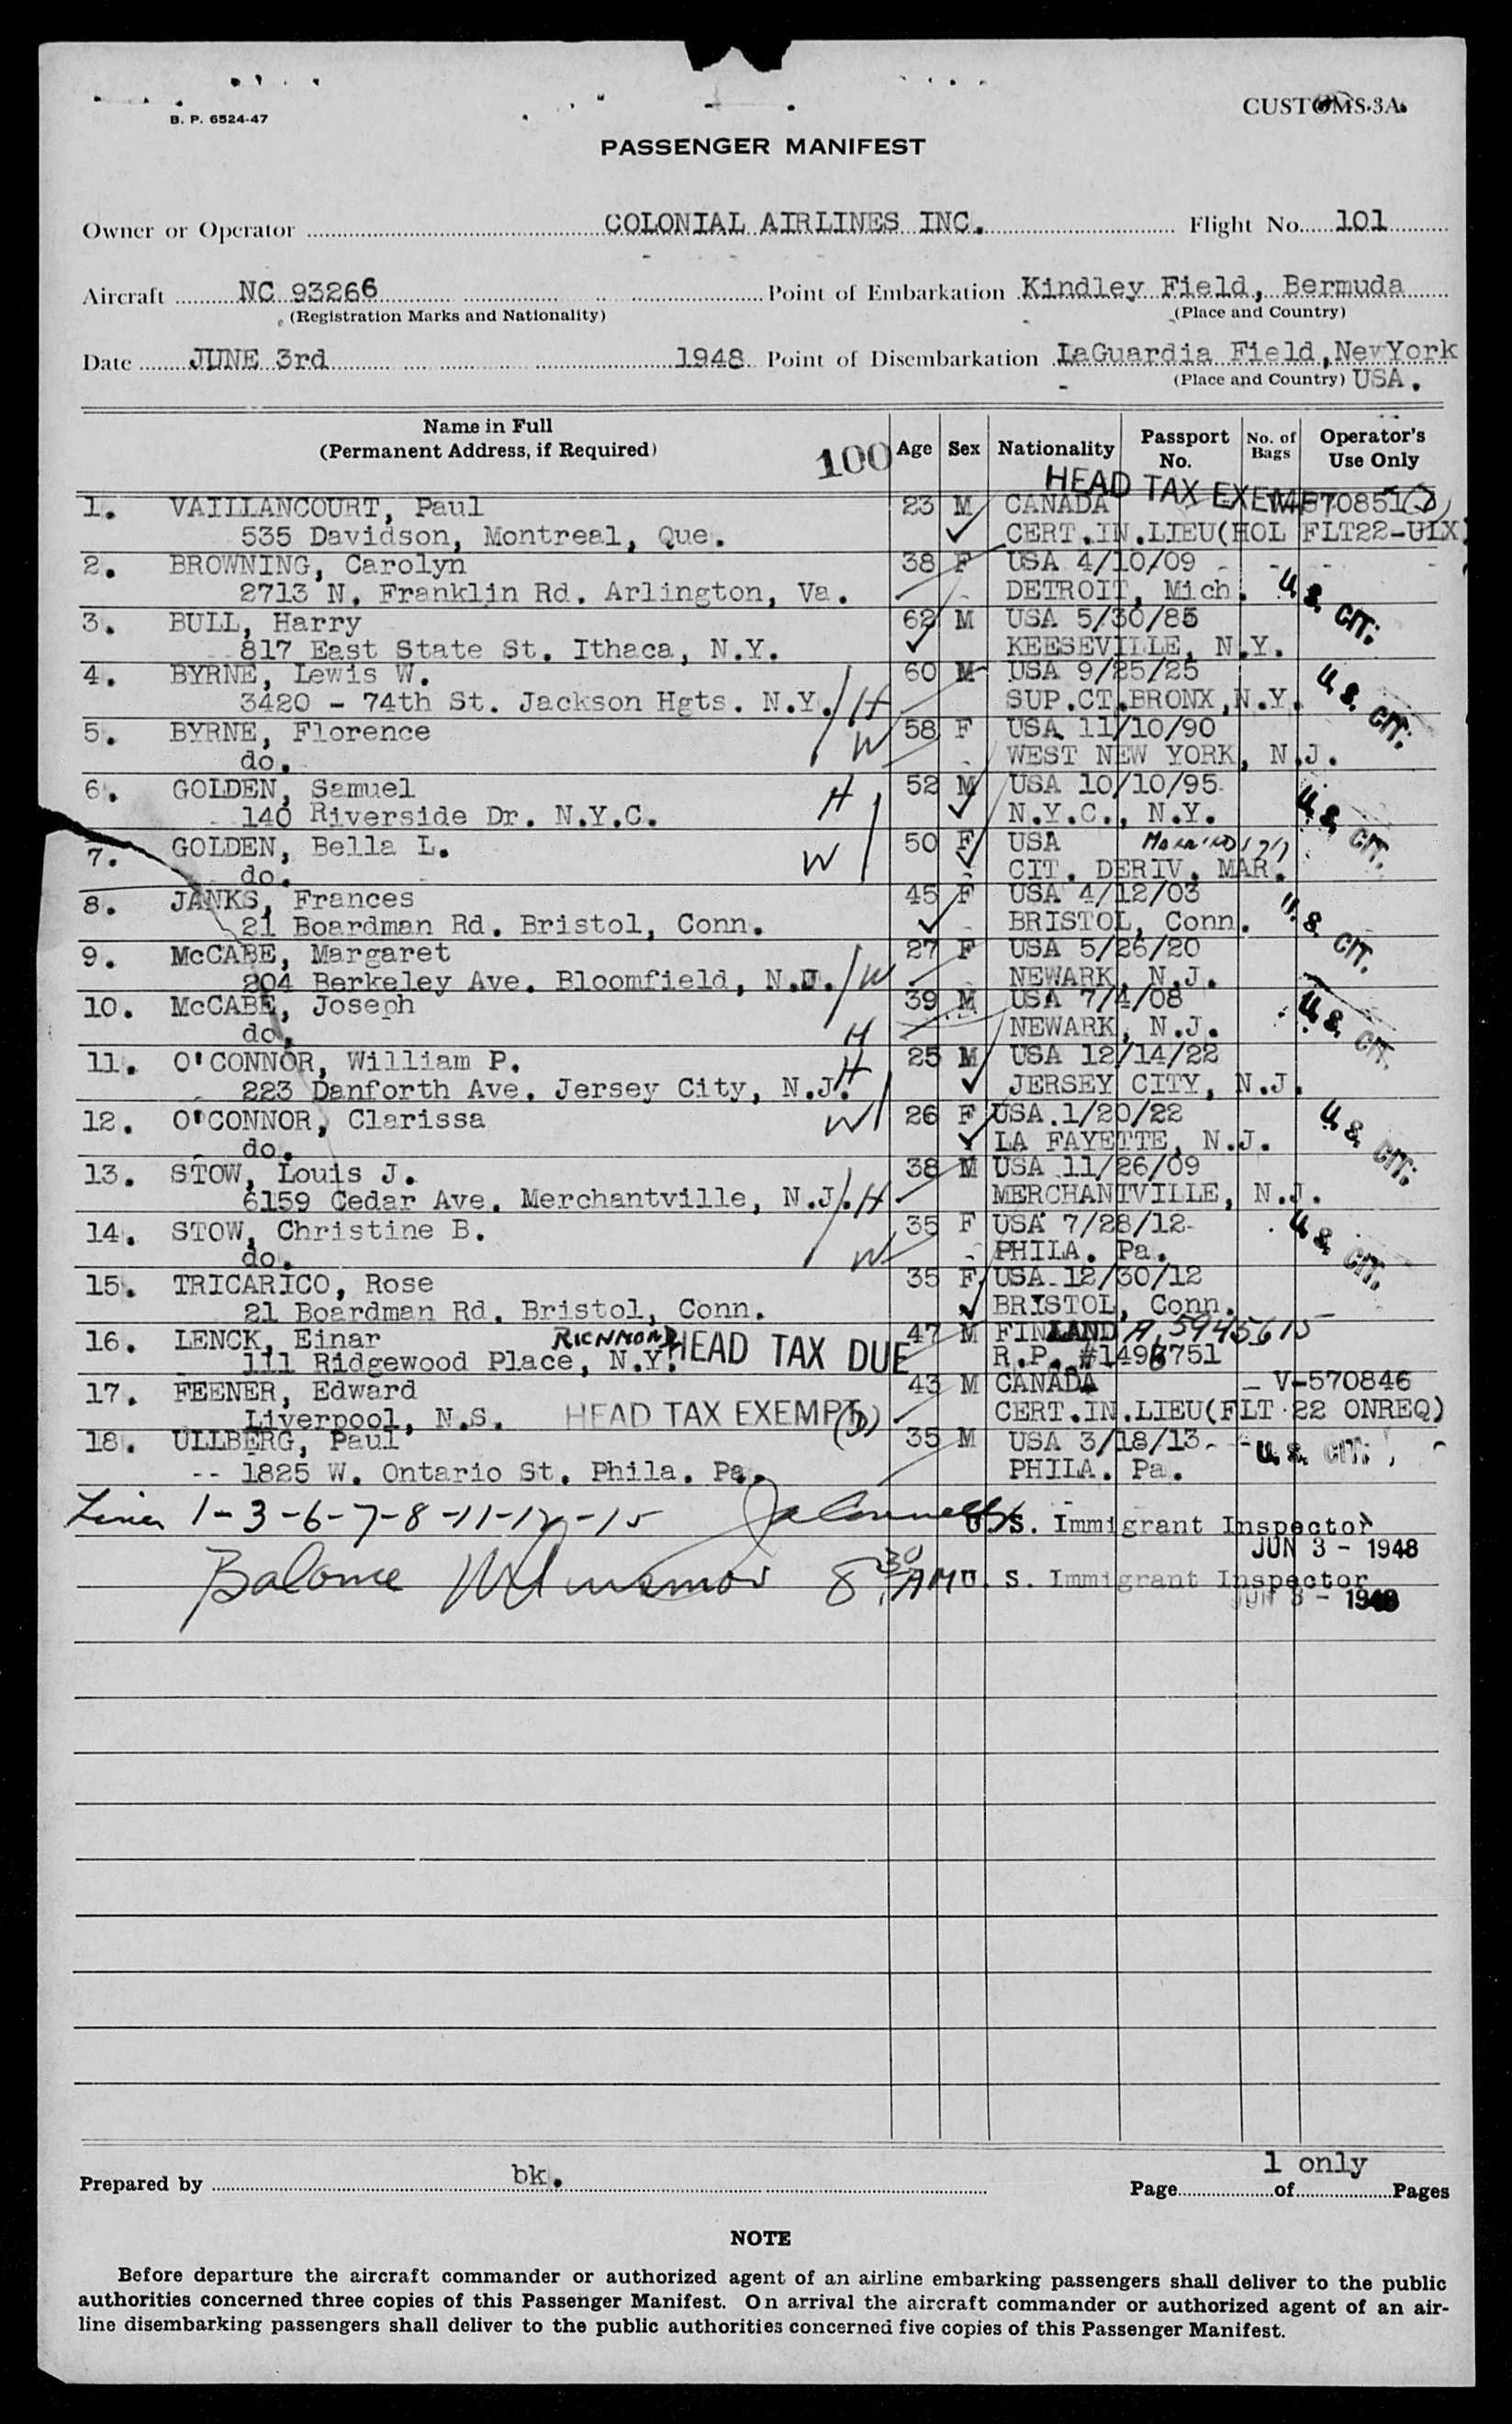 B. P. 6524-47
CUSTOMS-3A
PASSENGER MANIFEST
Owner or Operator COLONIAL AIRLINES INC. Flight No. 101
Aircraft NC 93266 Point of Embarkation Kindley Field, Bermuda
(Registration Marks and Nationality) (Place and Country)
Date JUNE 3rd 1948 Point of Disembarkation LaGuardia Field, NewYork
(Place and Country) USA.
Name in Full
(Permanent Address, if Required)
100
Age Sex Nationality Passport No. No. of Bags Operator's Use Only
HEAD TAX EXEMPT
1. VAILLANCOURT, Paul 23 M CANADA 570851
535 Davidson, Montreal, Que. CERT.IN.LIEU(HOL FLT22-ULX)
2. BROWNING, Carolyn 38 F USA 4/10/09
2713 N. Franklin Rd. Arlington, Va. DETROIT, Mich. U.S. CIT:
3. BULL, Harry 62 M USA 5/30/85
817 East State St. Ithaca, N.Y. KEESEVILLE, N.Y.
4. BYRNE, Lewis W. 60 M USA 9/25/25 U.S. CIT:
3420 - 74th St. Jackson Hgts. N.Y. H SUP.CT.BRONX,N.Y.
5. BYRNE, Florence 58 F USA 11/10/90
do. W WEST NEW YORK, N.J.
6. GOLDEN, Samuel H 52 M USA 10/10/95 U.S. CIT.
140 Riverside Dr. N.Y.C. N.Y.C., N.Y.
7. GOLDEN, Bella L. W 50 F USA
do. CIT. DERIV. MAR.
8. JANKS, Frances 45 F USA 4/12/03 U.S. CIT.
21 Boardman Rd. Bristol, Conn. BRISTOL, Conn.
9. McCABE, Margaret 27 F USA 5/26/20
204 Berkeley Ave. Bloomfield, N.J. W NEWARK, N.J.
10. McCABE, Joseph 39 M USA 7/4/08 U.S. CIT.
do. H NEWARK, N.J.
11. O'CONNOR, William P. H 25 M USA 12/14/22
223 Danforth Ave. Jersey City, N.J. JERSEY CITY, N.J.
12. O'CONNOR, Clarissa W 26 F USA.1/20/22 U.S. CIT:
do. LA FAYETTE, N.J.
13. STOW, Louis J. 38 M USA 11/26/09
6159 Cedar Ave. Merchantville, N.J. H MERCHANTVILLE, N.J.
14. STOW, Christine B. 35 F USA 7/28/12 U.S. CIT.
do. W PHILA. Pa.
15. TRICARICO, Rose 35 F USA 12/30/12
21 Boardman Rd. Bristol, Conn. BRISTOL, Conn.
16. LENCK, Einar RICHMOND HEAD TAX DUE 47 M FINLAND A 5945615
111 Ridgewood Place, N.Y. R.P. #1496751
17. FEENER, Edward 43 M CANADA V-570846
Liverpool, N.S. HEAD TAX EXEMPT CERT.IN.LIEU(FLT 22 ONREQ)
18. ULLBERG, Paul 35 M USA 3/18/13 U.S. CIT:
-- 1825 W. Ontario St. Phila. Pa. PHILA. Pa.
Lines 1-3-6-7-8-11-12-15 U.S. Immigrant Inspector
JUN 3 - 1948
Balance 8 30 AM U. S. Immigrant Inspector
JUN 3 - 1948
Prepared by bk. Page 1 of only Pages
NOTE
Before departure the aircraft commander or authorized agent of an airline embarking passengers shall deliver to the public
authorities concerned three copies of this Passenger Manifest. On arrival the aircraft commander or authorized agent of an air-
line disembarking passengers shall deliver to the public authorities concerned five copies of this Passenger Manifest.